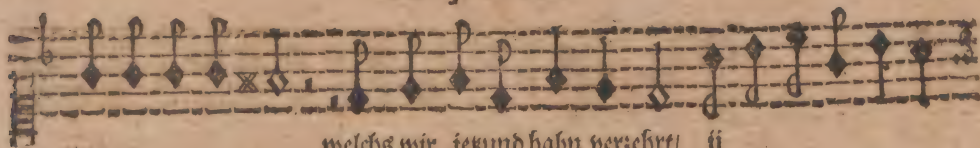 welchs wir jetzund habn verzehrt/ ij